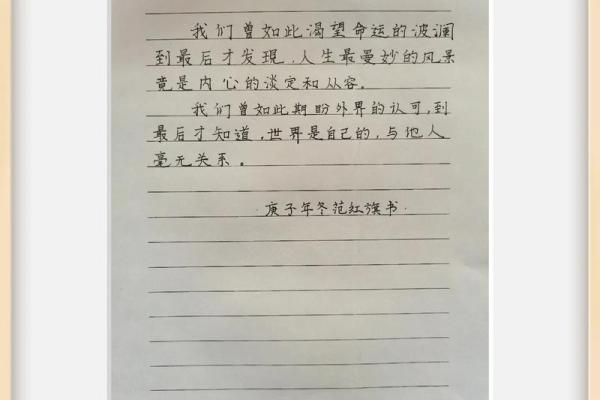 我们曾如此渴望命运的波澜
到最后才发現，人生最曼妙的风景
竟是内心的淡定和从容。
我们曾如此期盼外界的认可，到
最后才知道，世界是自己的，与他人
毫无关系。
·庚子年冬范红旗书·